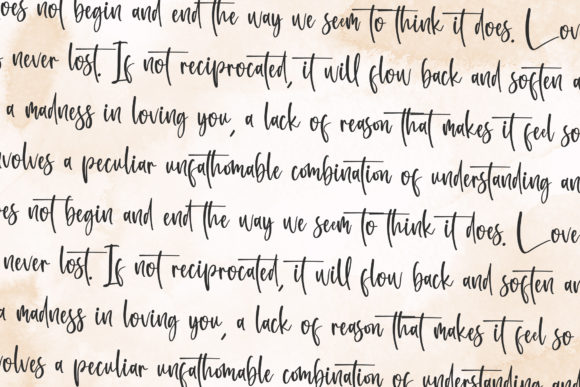 oes not begin and end the way we seem to think it does. Lov
never lost. If not reciprocated, it will flow back and soften a
a madness in loving you, a lack of reason that makes it feel so
volves a peculiar unfathomable combination of understanding an
es not begin and end the way we seem to think it does. Love
never lost. If not reciprocated, it will flow back and soften an
a madness in loving you, a lack of reason that makes it feel so
volves a peculiar unfathomable combination of understanding and